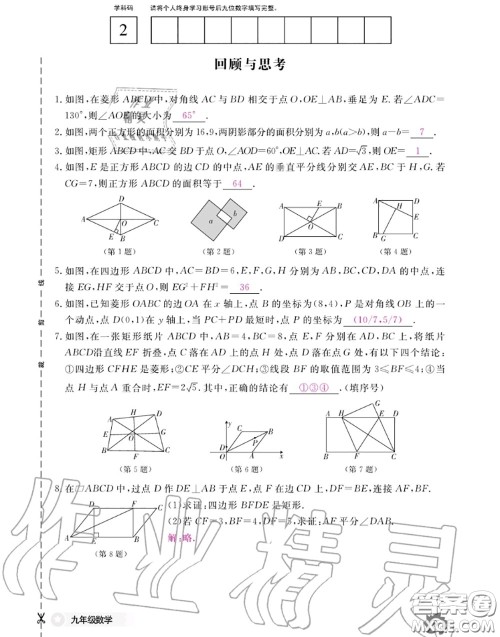 学科码 请将个人终身学习账号后九位数字填写完整。
2
回顾与思考
1. 如图,在菱形 ABCD 中,对角线 AC 与 BD 相交于点 O,OE⊥AB,垂足为 E. 若∠ADC=
130°,则∠AOE 的大小为 65° .
2. 如图,两个正方形的面积分别为 16,9,两阴影部分的面积分别为 a,b(a>b),则 a-b= 7 .
3. 如图,矩形 ABCD 中,AC 交 BD 于点 O,∠AOD=60°,OE⊥AC. 若 AD=√3,则 OE= 1 .
4. 如图,E 是正方形 ABCD 的边 CD 的中点,AE 的垂直平分线分别交 AE,BC 于 H,G. 若
CG=7,则正方形 ABCD 的面积等于 64 .
(第 1 题) (第 2 题) (第 3 题) (第 4 题)
5. 如图,在四边形 ABCD 中,AC=BD=6,E,F,G,H 分别为 AB,BC,CD,DA 的中点,连
接 EG,HF 交于点 O,则 EG²+FH²= 36 .
6. 如图,已知菱形 OABC 的边 OA 在 x 轴上,点 B 的坐标为(8,4),P 是对角线 OB 上的一
个动点,点 D(0,2)在 y 轴上,当 PC+PD 最短时,点 P 的坐标为 (10/7,5/7) .
7. 如图,在一张矩形纸片 ABCD 中,AB=4,BC=8,点 E,F 分别在 AD,BC 上,将纸片
ABCD沿直线 EF 折叠,点 C 落在 AD 上的点 H 处,点 D 落在点 G 处,有以下四个结论:
①四边形 CFHE 是菱形;②CE 平分∠DCH;③线段 BF 的取值范围为 3≤BF≤4;④当
点 H 与点 A 重合时,EF=2√5. 其中,正确的结论有 ①③④ .(填序号)
(第 5 题) (第 6 题) (第 7 题)
8. 在□ABCD 中,过点 D 作 DE⊥AB 于点 E,点 F 在边 CD 上,DF=BE,连接 AF,BF.
(1)求证:四边形 BFDE 是矩形.
(2)若 CF=3,BF=4,DF=5,求证:AF平分∠DAB.
解:略.
(第 8 题)
九年级数学
作业精灵